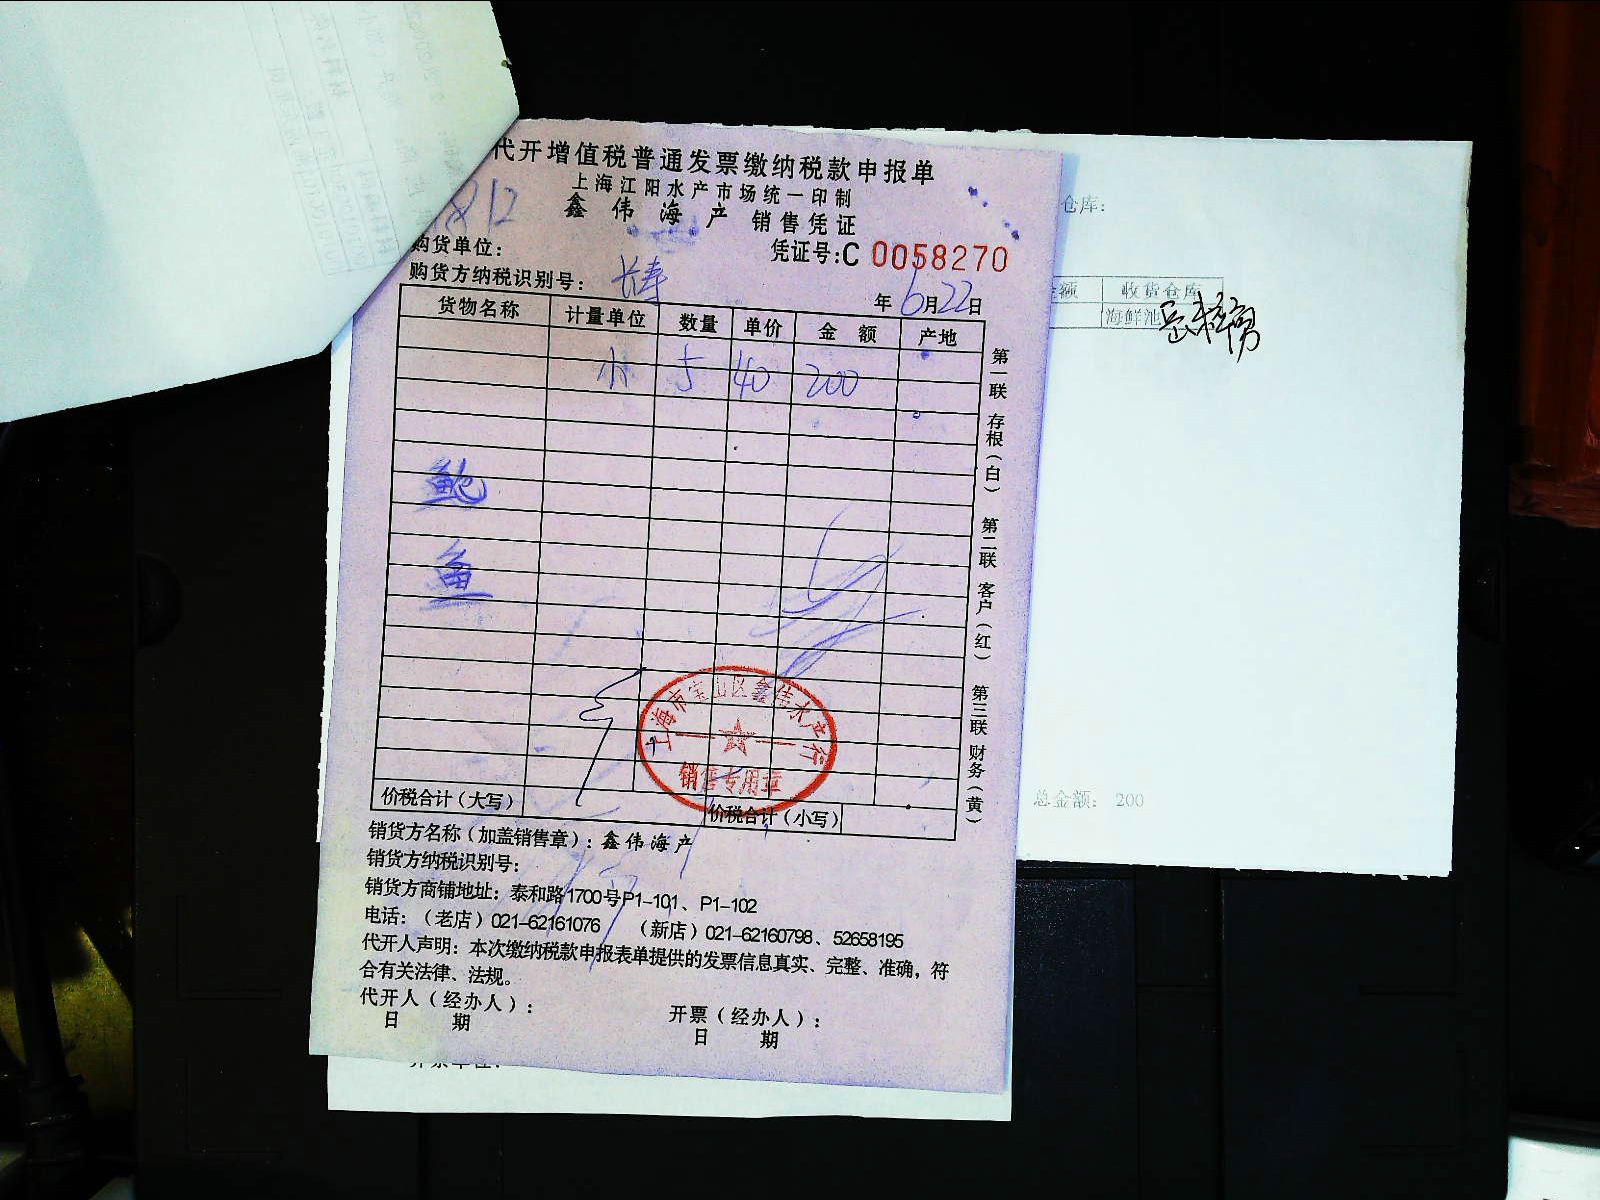 代开增值税普通发票缴纳税款申报单
上海江阳水产市场统一印制
鑫伟海产 销售凭证
812
购货单位：
凭证号:C 0058270
购货方纳税识别号： 长寿
年6月22日
货物名称 计量单位 数量 单价 金额 产地
小 5 40 200
鲍
鱼
价税合计（大写） 价税合计（小写）
上海市宝山区鑫伟水产行
销售专用章
销货方名称（加盖销售章）：鑫伟海产
销货方纳税识别号：
销货方商铺地址：泰和路1700号P1-101、P1-102
电话：（老店）021-62161076 （新店）021-62160798、52658195
代开人声明：本次缴纳税款申报表单提供的发票信息真实、完整、准确，符
合有关法律、法规。
代开人（经办人）： 开票（经办人）：
日期 日期
第一联 存根（白） 第二联 客户（红） 第三联 财务（黄）
仓库：
金额 收货仓库
海鲜池
总金额： 200